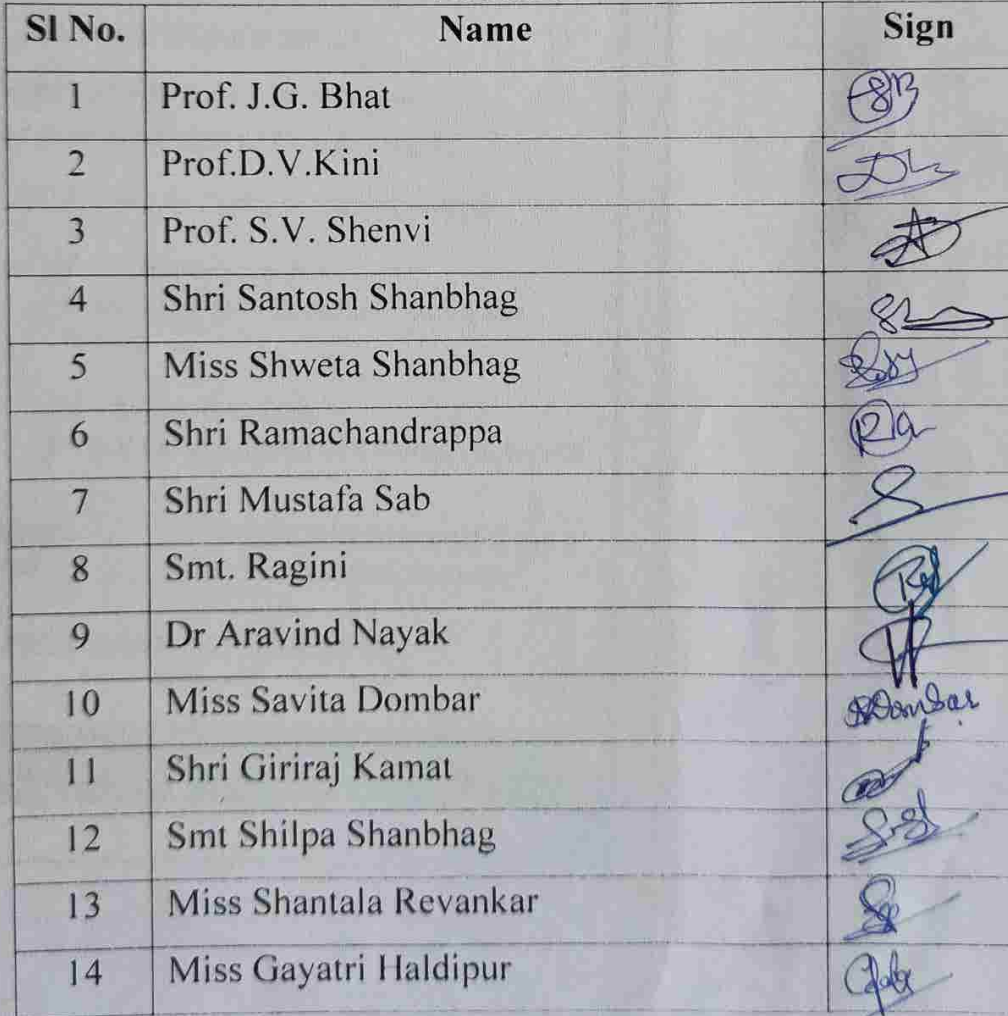 Sl No. Name Sign
1 Prof. J.G. Bhat
2 Prof.D.V.Kini
3 Prof. S.V. Shenvi
4 Shri Santosh Shanbhag
5 Miss Shweta Shanbhag
6 Shri Ramachandrappa
7 Shri Mustafa Sab
8 Smt. Ragini
9 Dr Aravind Nayak
10 Miss Savita Dombar
11 Shri Giriraj Kamat
12 Smt Shilpa Shanbhag
13 Miss Shantala Revankar
14 Miss Gayatri Haldipur